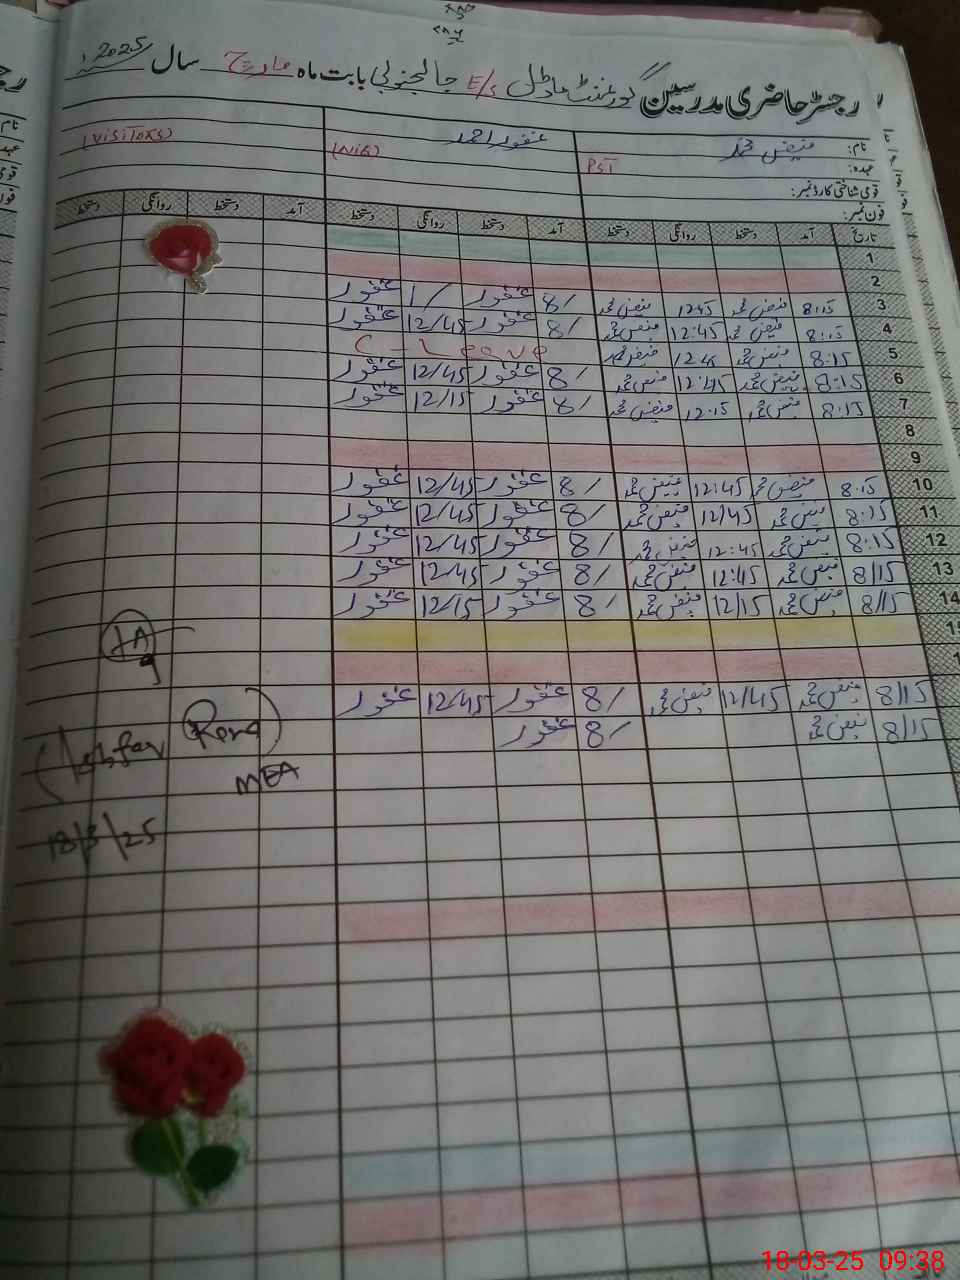 رجسٹر حاضری مدرسین گورنمنٹ ماڈل E/s بابت ماہ مارچ سال 2025
نام: فیض محمد غفور احمد (VISITORS)
عہدہ: PST (N/Q)
قومی شناختی کارڈ نمبر:
فون نمبر:
تاریخ آمد دستخط روانگی دستخط آمد دستخط روانگی دستخط آمد دستخط روانگی دستخط
1
2
3 8:15 فیض محمد 12:45 فیض محمد 8/ غفور 1/ غفور
4 8:15 فیض محمد 12:45 فیض محمد 8/ غفور 12/45 غفور
5 8:15 فیض محمد 12:45 فیض محمد C-Leave
6 8:15 فیض محمد 12:45 فیض محمد 8/ غفور 12/45 غفور
7 8:15 فیض محمد 12:15 فیض محمد 8/ غفور 12/15 غفور
8
9
10 8:15 فیض محمد 12:45 فیض محمد 8/ غفور 12/45 غفور
11 8:15 فیض محمد 12/45 فیض محمد 8/ غفور 12/45 غفور
12 8:15 فیض محمد 12:45 فیض محمد 8/ غفور 12/45 غفور
13 8/15 فیض محمد 12:45 فیض محمد 8/ غفور 12/45 غفور
14 8/15 فیض محمد 12/15 فیض محمد 8/ غفور 12/15 غفور
15
8/15 فیض محمد 12/45 فیض محمد 8/ غفور 12/45 غفور
8/15 فیض محمد 8/ غفور
MEA
18/3/25
18-03-25 09:38